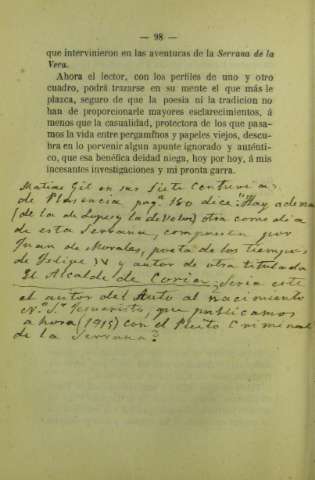 — 98 —
que intervinieron en las aventuras de la Serrana de la
Vera.
Ahora el lector, con los perfiles de uno y otro
cuadro, podrá trazarse en su mente el que más le
plazca, seguro de que la poesia ni la tradicion no
han de proporcionarle mayores esclarecimientos, á
menos que la casualidad, protectora de los que pasa-
mos la vida entre pergamĩnos y papeles viejos, descu-
bra en lo porvenir algun apunte ignorado y auténti-
co, que esa benéfica deidad niega, hoy por hoy, á mis
incesantes investigaciones y mi pronta garra.
Matias Gil en sus Siete Centurias
de Plasencia pagª 160 dice: "Hay ademas
(de la de Lope y la de Velez) otra comedia
de esta Serrana, compuesta por
Juan de Morales, poeta de los tiempos
de Felipe IV y autor de otra titulada
El Alcalde de Coria. Seria este
el autor del Auto al nacimiento
N.º S.r Jesucristo, que publicamos
ahora (1915) con el Pleito Criminal
de la Serrana?